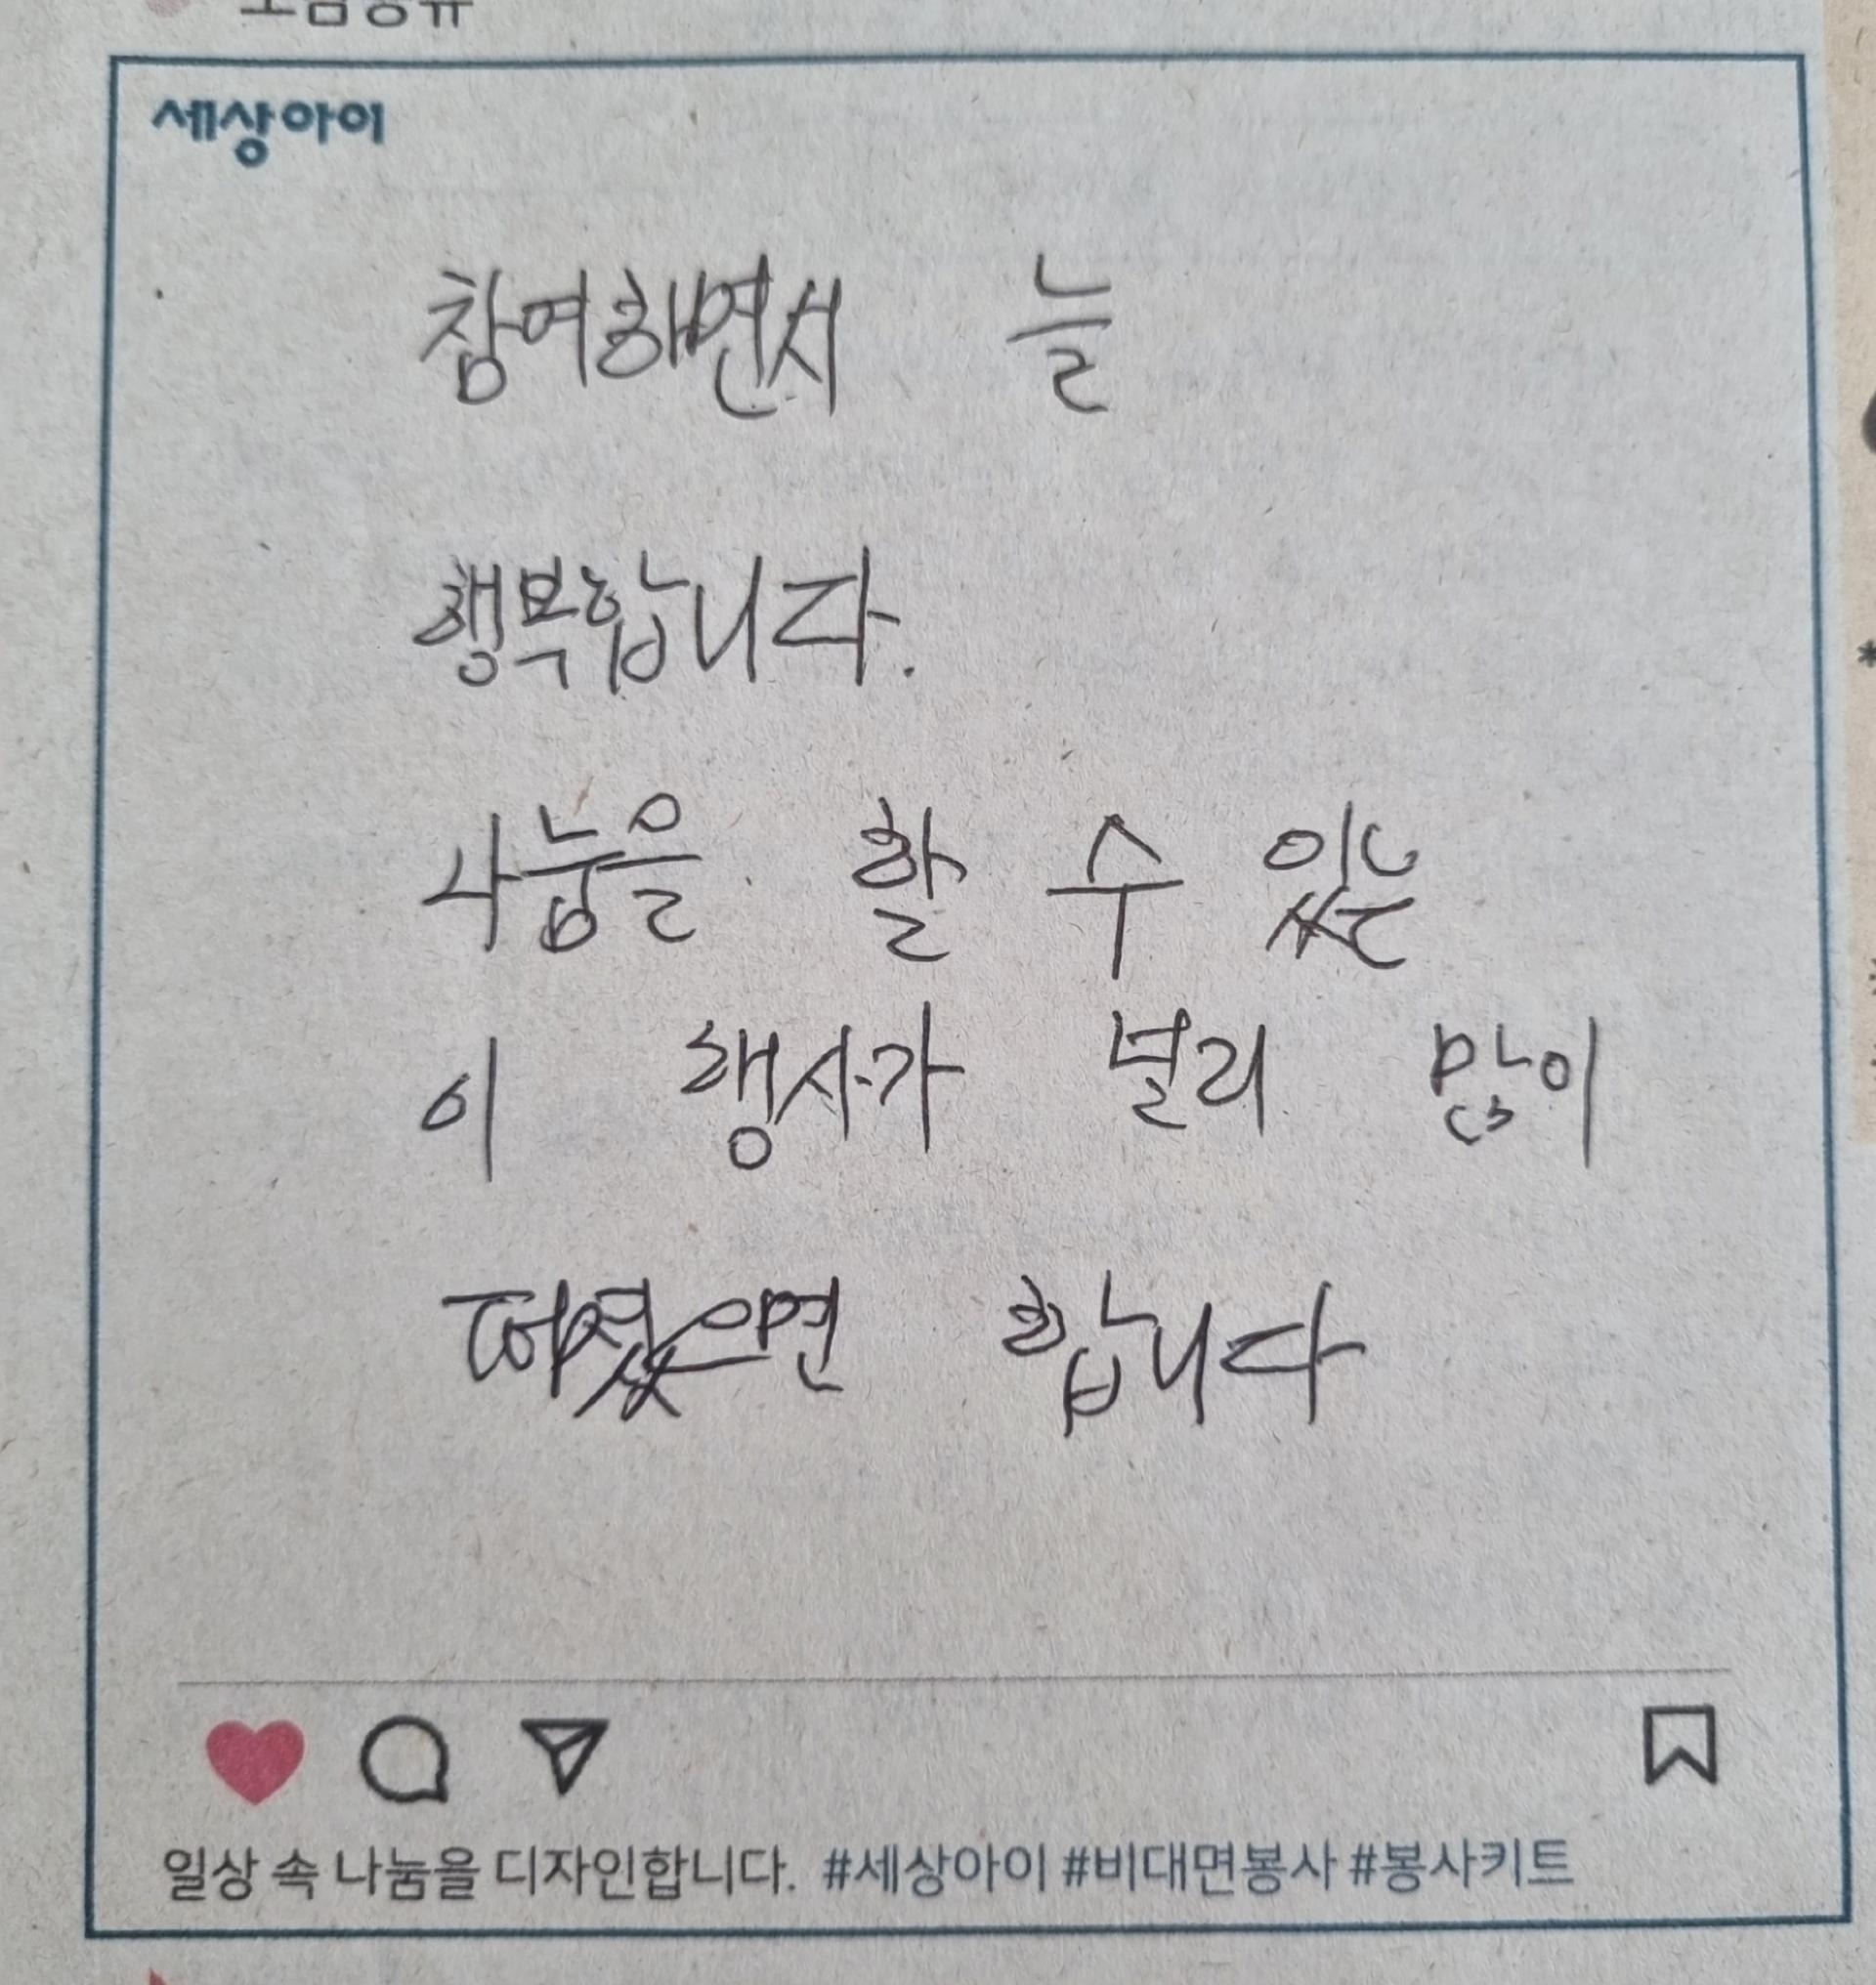 세상아이
참여하면서 늘
행복합니다.
나눔을 할 수 있는
이 행사가 널리 많이
퍼졌으면 합니다
일상 속 나눔을 디자인합니다. #세상아이 #비대면봉사 #봉사키트